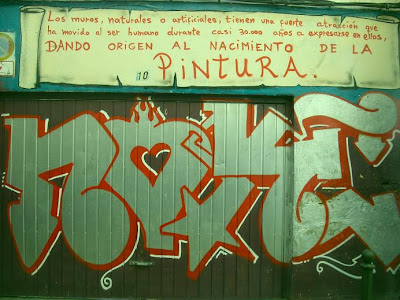 Los muros, naturales o artificiales, tienen una fuerte atracción que
ha movido al ser humano durante casi 30.000 años a expresarse en ellos,
DANDO ORIGEN AL NACIMIENTO DE LA
10
PINTURA.